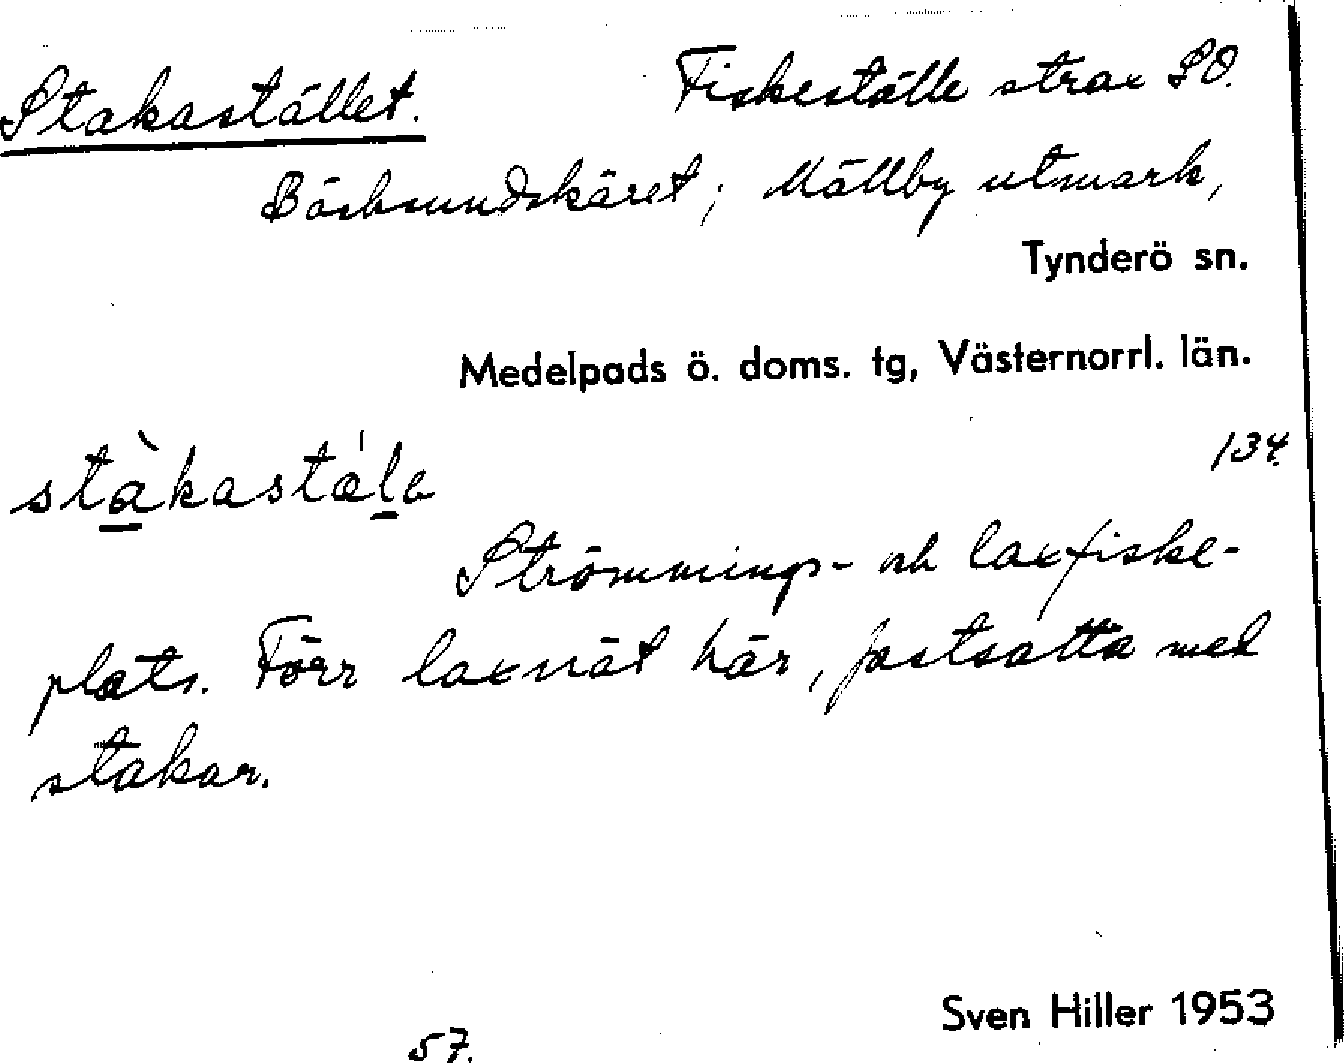 Stakastället. Fiskeställe strax SO.
Båsksundskäret; Mällby utmark,
Tynderö sn.
Medelpads ö. doms. tg, Västernorrl. län.
134.
stàkastæ̀la
Strömmings- och laxfiske-
plats. Förr laxnät här, fastsatta med
stakar.
Sven Hiller 1953
57.